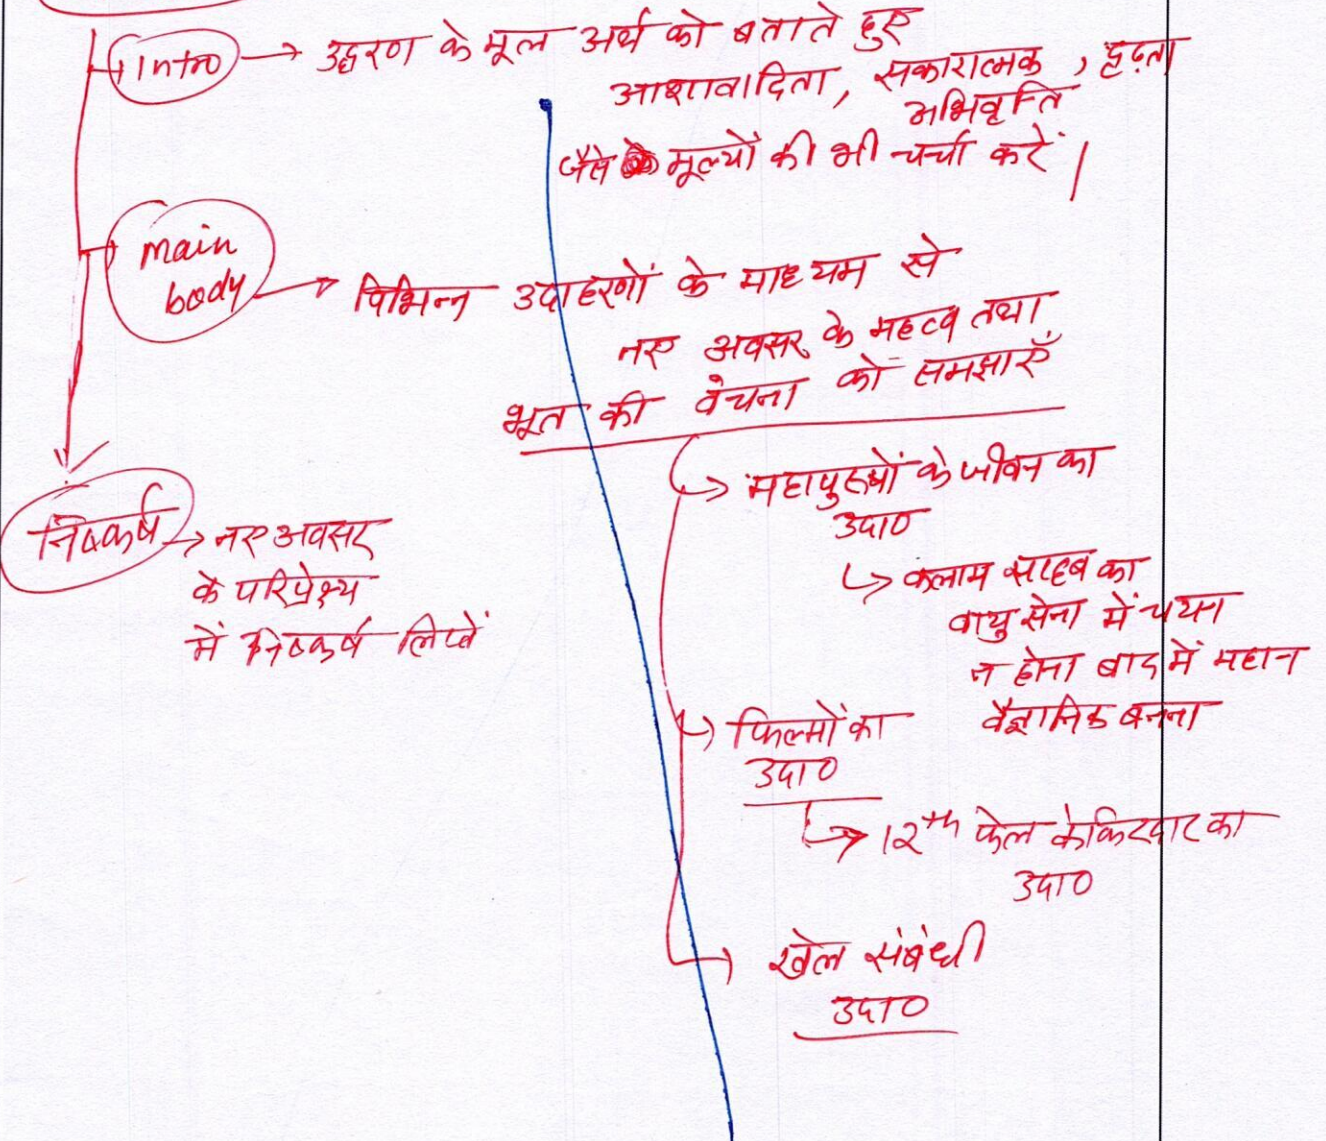 Intro → उद्धरण के मूल अर्थ को बताते हुए
आशावादिता, सकारात्मक, दृढ़ता
अभिवृत्ति
जैसे मूल्यों की भी चर्चा करें।
main
body → विभिन्न उदाहरणों के माध्यम से
नए अवसर के महत्व तथा
भूत की वंचना को समझाएँ
→ महापुरुषों के जीवन का
उदा०
→ कलाम साहब का
वायु सेना में चयन
न होना बाद में महान
वैज्ञानिक बनना
→ फिल्मों का
उदा०
→ 12th फेल के किरदार का
उदा०
→ खेल संबंधी
उदा०
निष्कर्ष → नए अवसर
के परिप्रेक्ष्य
में निष्कर्ष लिखें